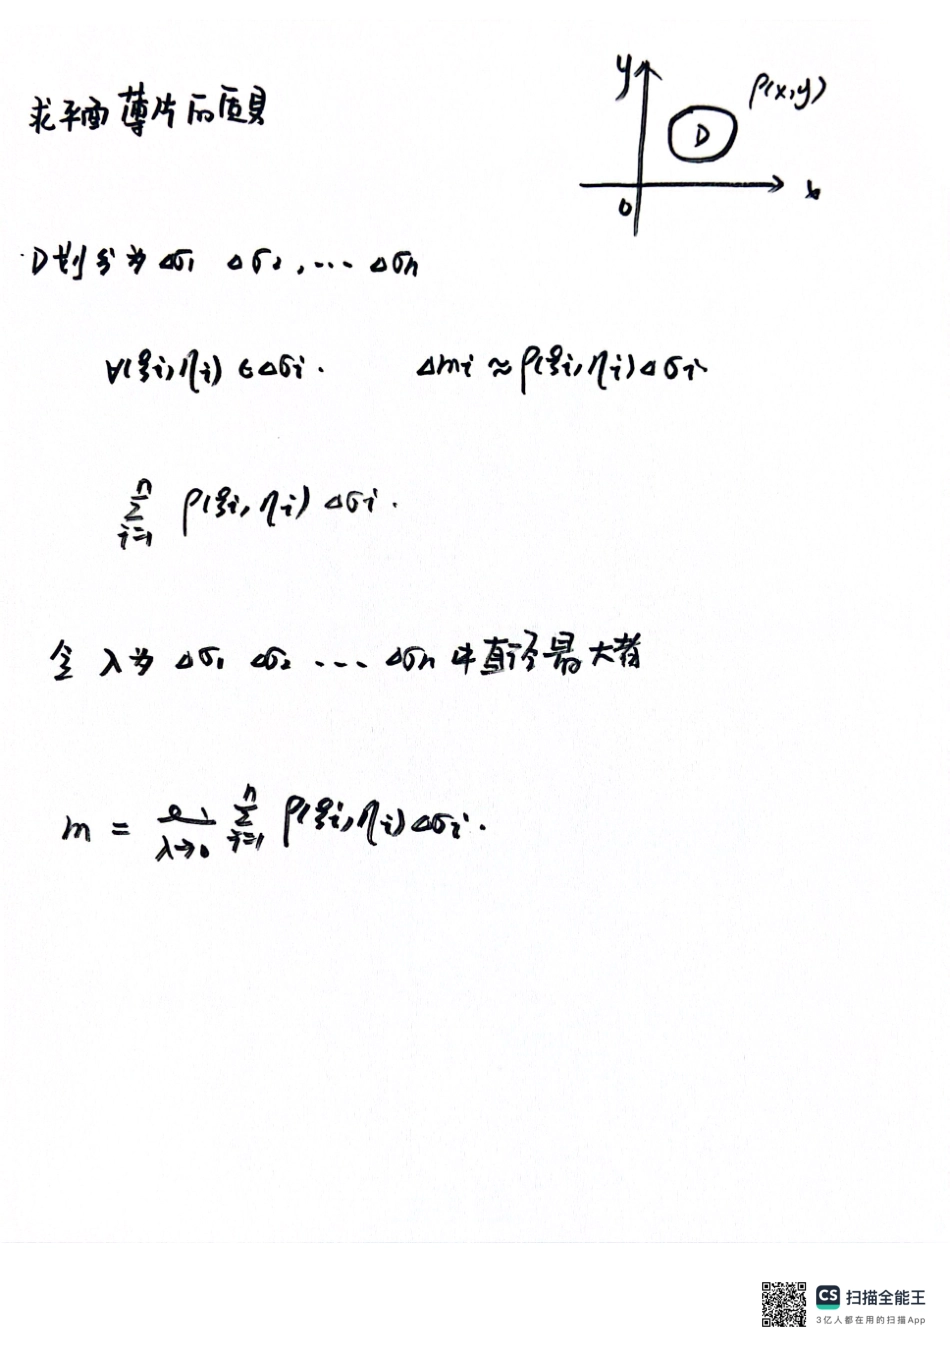 求平面薄片的质量
y
ρ(x,y)
D
0
x
D划分为 Δσ1 Δσ2, ... Δσn
∀(ξi,ηi)∈Δσi. Δmi≈ρ(ξi,ηi)Δσi.
n
∑ ρ(ξi,ηi)Δσi.
i=1
令 λ为 Δσ1 Δσ2 ... Δσn 中直径最大者
m = lim λ→0 n ∑ i=1 ρ(ξi,ηi)Δσi.
CS 扫描全能王
3亿人都在用的扫描App